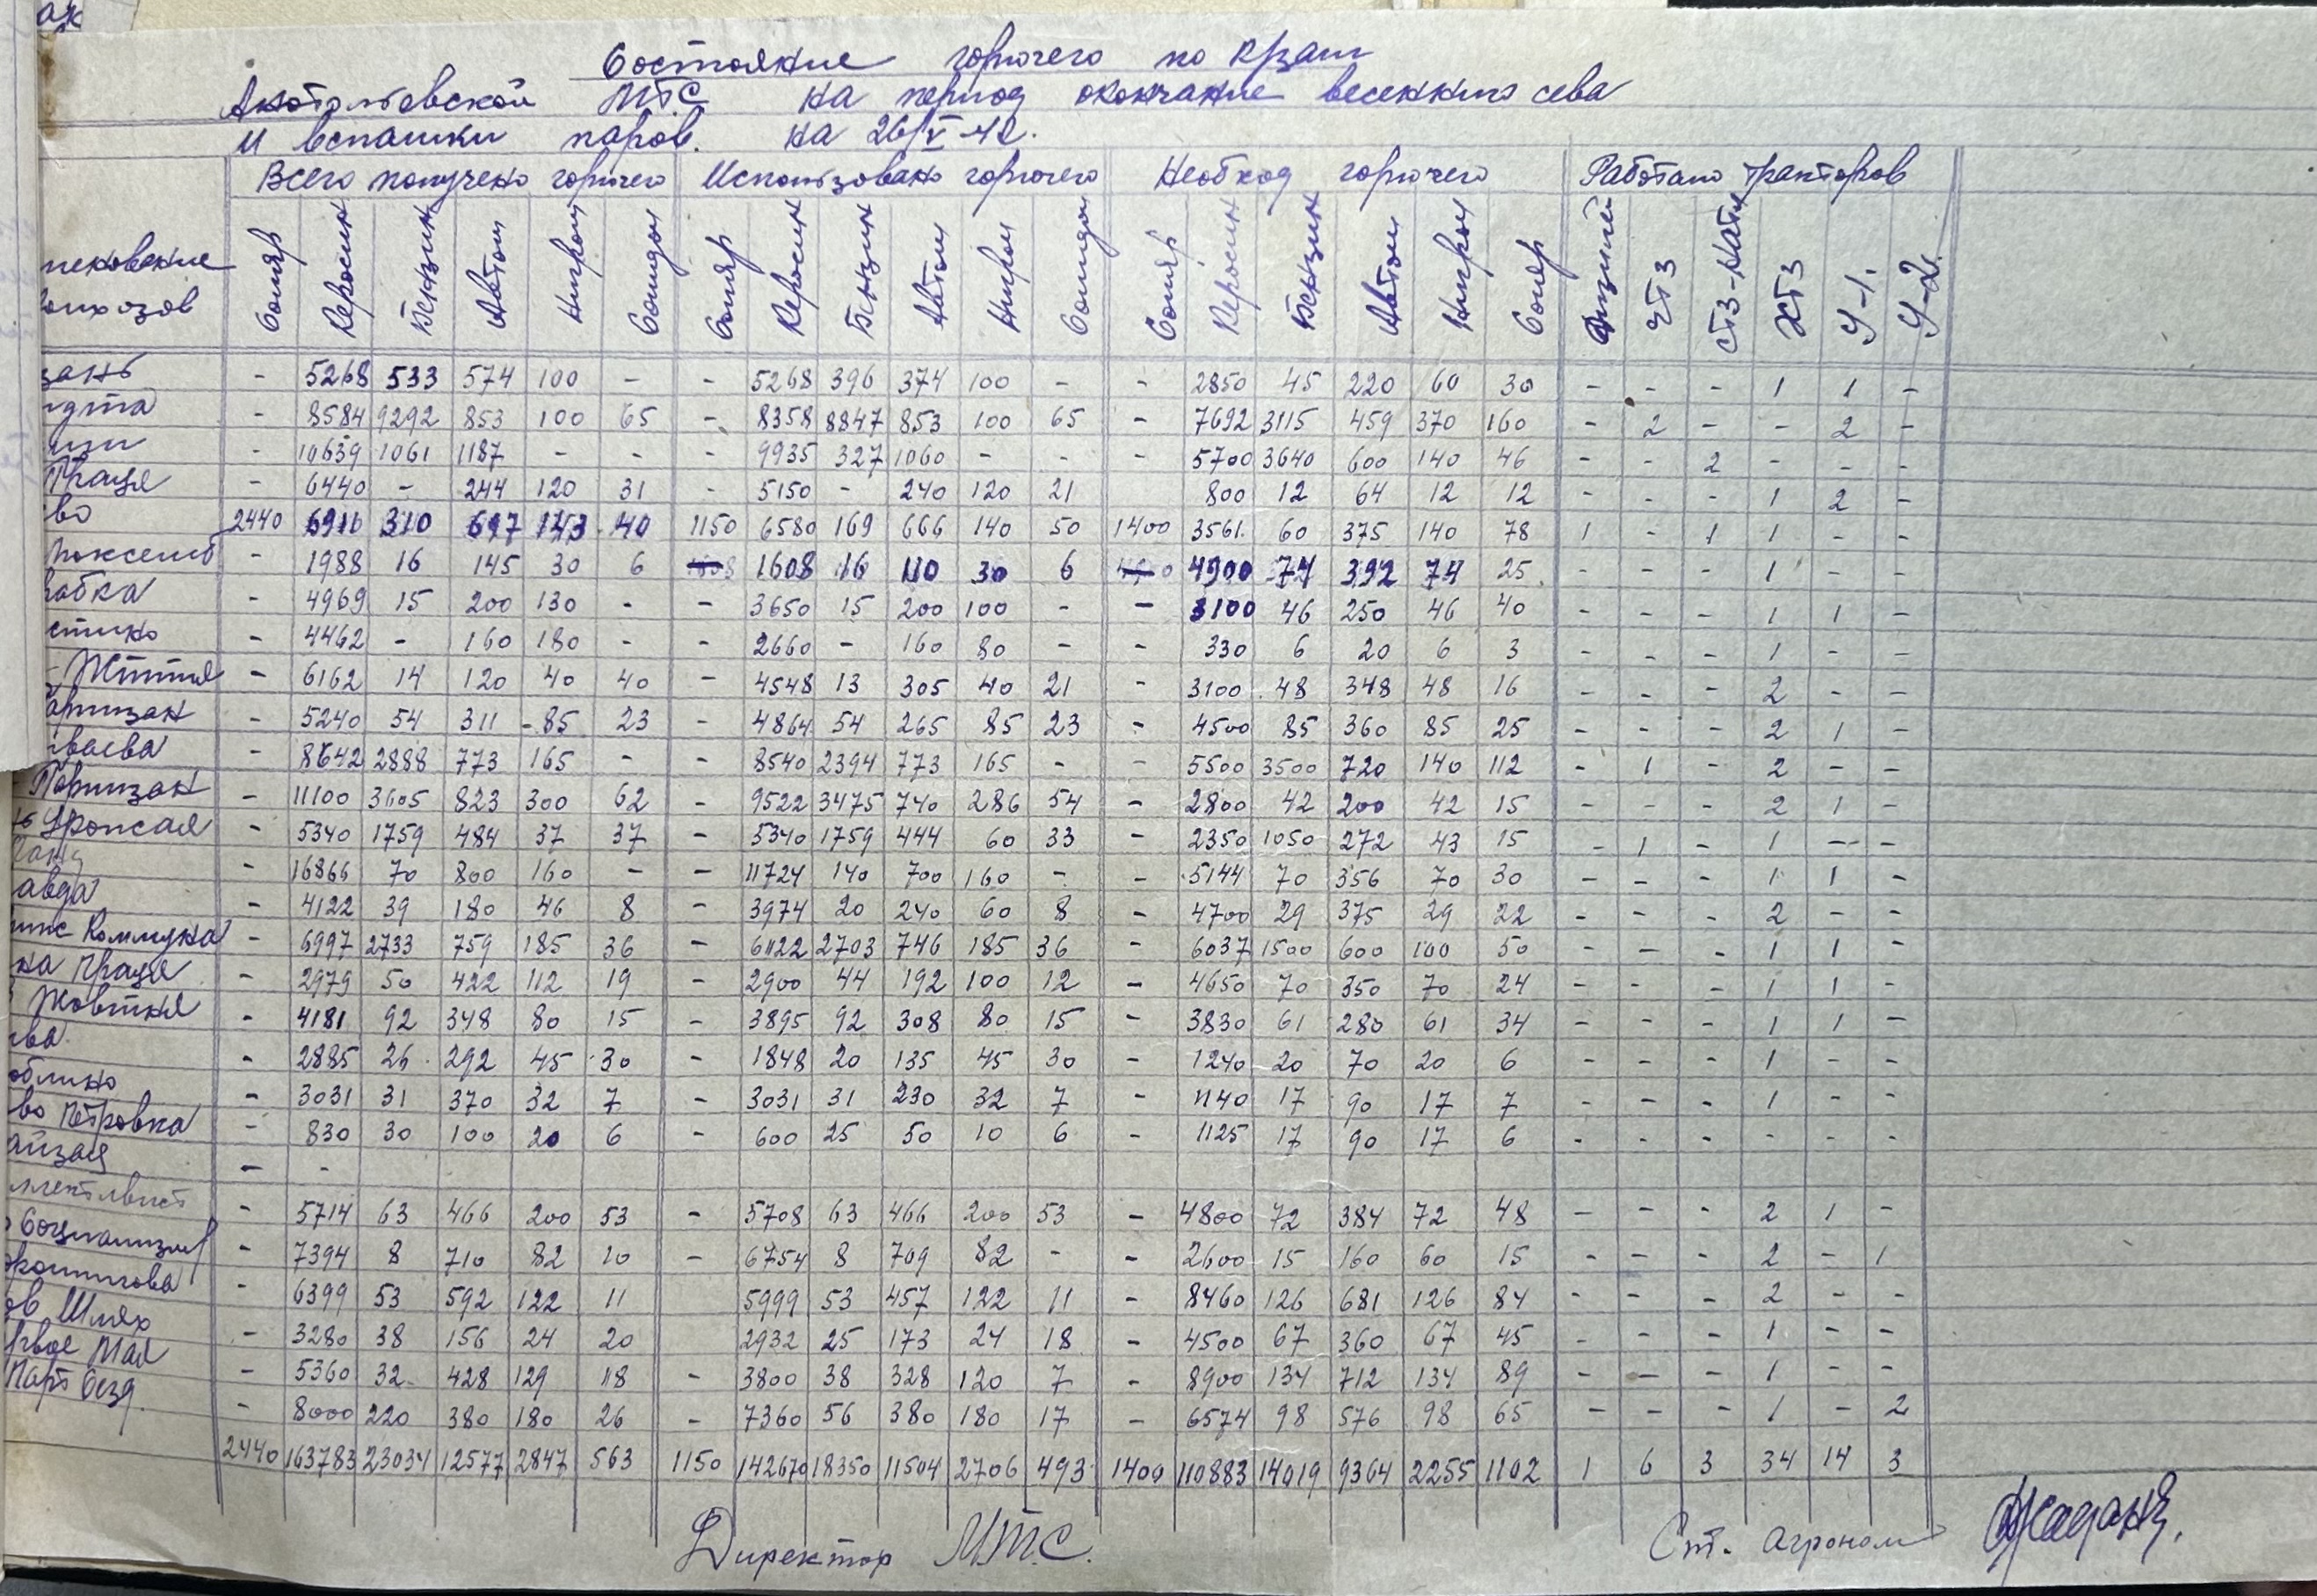 Состояние горючего по краш
Анатольевской МТС на период окончание весеннего сева
И вспашки паров. на 26/V-42.
Всего получено горючего Использовано горючего Необход горючего Работало тракторов
меновение колхозов Соляр Керосин Бензин Автол Нигрол Солидол Соляр Керосин Бензин Автол Нигрол Солидол Соляр Керосин Бензин Автол Нигрол Соляр Дизилей ЧТЗ СТЗ-Нати ХТЗ У-1. У-2.
зань - 5268 533 574 100 - - 5268 396 374 100 - - 2850 45 220 60 30 - - - 1 1 -
- 8584 9292 853 100 65 - 8358 8847 853 100 65 - 7692 3115 459 370 160 - 2 - - 2 -
- 10639 1061 1187 - - - 9935 327 1060 - - - 5700 3640 600 140 46 - - 2 - - -
Праця - 6440 - 244 120 31 - 5150 - 240 120 21 800 12 64 12 12 - - - 1 2 -
во 2440 6911 310 697 143 40 1150 6580 169 666 140 50 1400 3561 60 375 140 78 1 - 1 1 - -
- 1988 16 145 30 6 1608 16 110 30 6 4900 74 392 74 25 - - - 1 - -
бка - 4969 15 200 130 - - 3650 15 200 100 - - 3100 46 250 46 40 - - - 1 1 -
- 4462 - 160 180 - - 2660 - 160 80 - - 330 6 20 6 3 - - - 1 - -
Життя - 6162 14 120 40 40 - 4548 13 305 40 21 - 3100 48 348 48 16 - - - 2 - -
артизан - 5240 54 311 85 23 - 4864 54 265 85 23 - 4500 85 360 85 25 - - - 2 1 -
ваева - 8642 2888 773 165 - - 8540 2394 773 165 - - 5500 3500 720 140 112 - 1 - 2 - -
Партизан - 11100 3605 823 300 62 - 9522 3475 740 286 54 - 2800 42 200 42 15 - - - 2 1 -
Урожая - 5340 1759 484 37 37 - 5340 1759 444 60 33 - 2350 1050 272 43 15 - 1 - 1 - -
- 16866 70 800 160 - - 11724 140 700 160 - - 5144 70 356 70 30 - - - 1 1 -
авда - 4122 39 180 46 8 - 3974 20 240 60 8 - 4700 29 375 29 22 - - - 2 - -
Коммуна - 6997 2733 759 185 36 - 6122 2703 746 185 36 - 6037 1500 600 100 50 - - - 1 1 -
на Праця - 2979 50 422 112 19 - 2900 44 192 100 12 - 4650 70 350 70 24 - - - 1 1 -
Жовтня - 4181 92 348 80 15 - 3895 92 308 80 15 - 3830 61 280 61 34 - - - 1 1 -
ва - 2885 26 292 45 30 - 1848 20 135 45 30 - 1240 20 70 20 6 - - - 1 - -
облино - 3031 31 370 32 7 - 3031 31 230 32 7 - 1140 17 90 17 7 - - - 1 - -
во Петровка - 830 30 100 20 6 - 600 25 50 10 6 - 1125 17 90 17 6 - - - - - -
- -
ллективист - 5714 63 466 200 53 - 5708 63 466 200 53 - 4800 72 384 72 48 - - - 2 1 -
Социализм - 7394 8 710 82 10 - 6754 8 709 82 - - 2600 15 160 60 15 - - - 2 - 1
- 6399 53 592 122 11 5999 53 457 122 11 - 8460 126 681 126 84 - - - 2 - -
ов Шлях - 3280 38 156 24 20 2932 25 173 24 18 - 4500 67 360 67 45 - - - 1 - -
рвое Мая - 5360 32 428 129 18 - 3800 38 328 120 7 - 8900 134 712 134 89 - - - 1 - -
Парт Сезд. - 8000 220 380 180 26 - 7360 56 380 180 17 - 6574 98 576 98 65 - - - 1 - 2
2440 163783 23034 12577 2847 563 1150 142670 18350 11504 2706 493 1400 110883 14019 9364 2255 1102 1 6 3 34 14 3
Директор МТС. Ст. Агроном